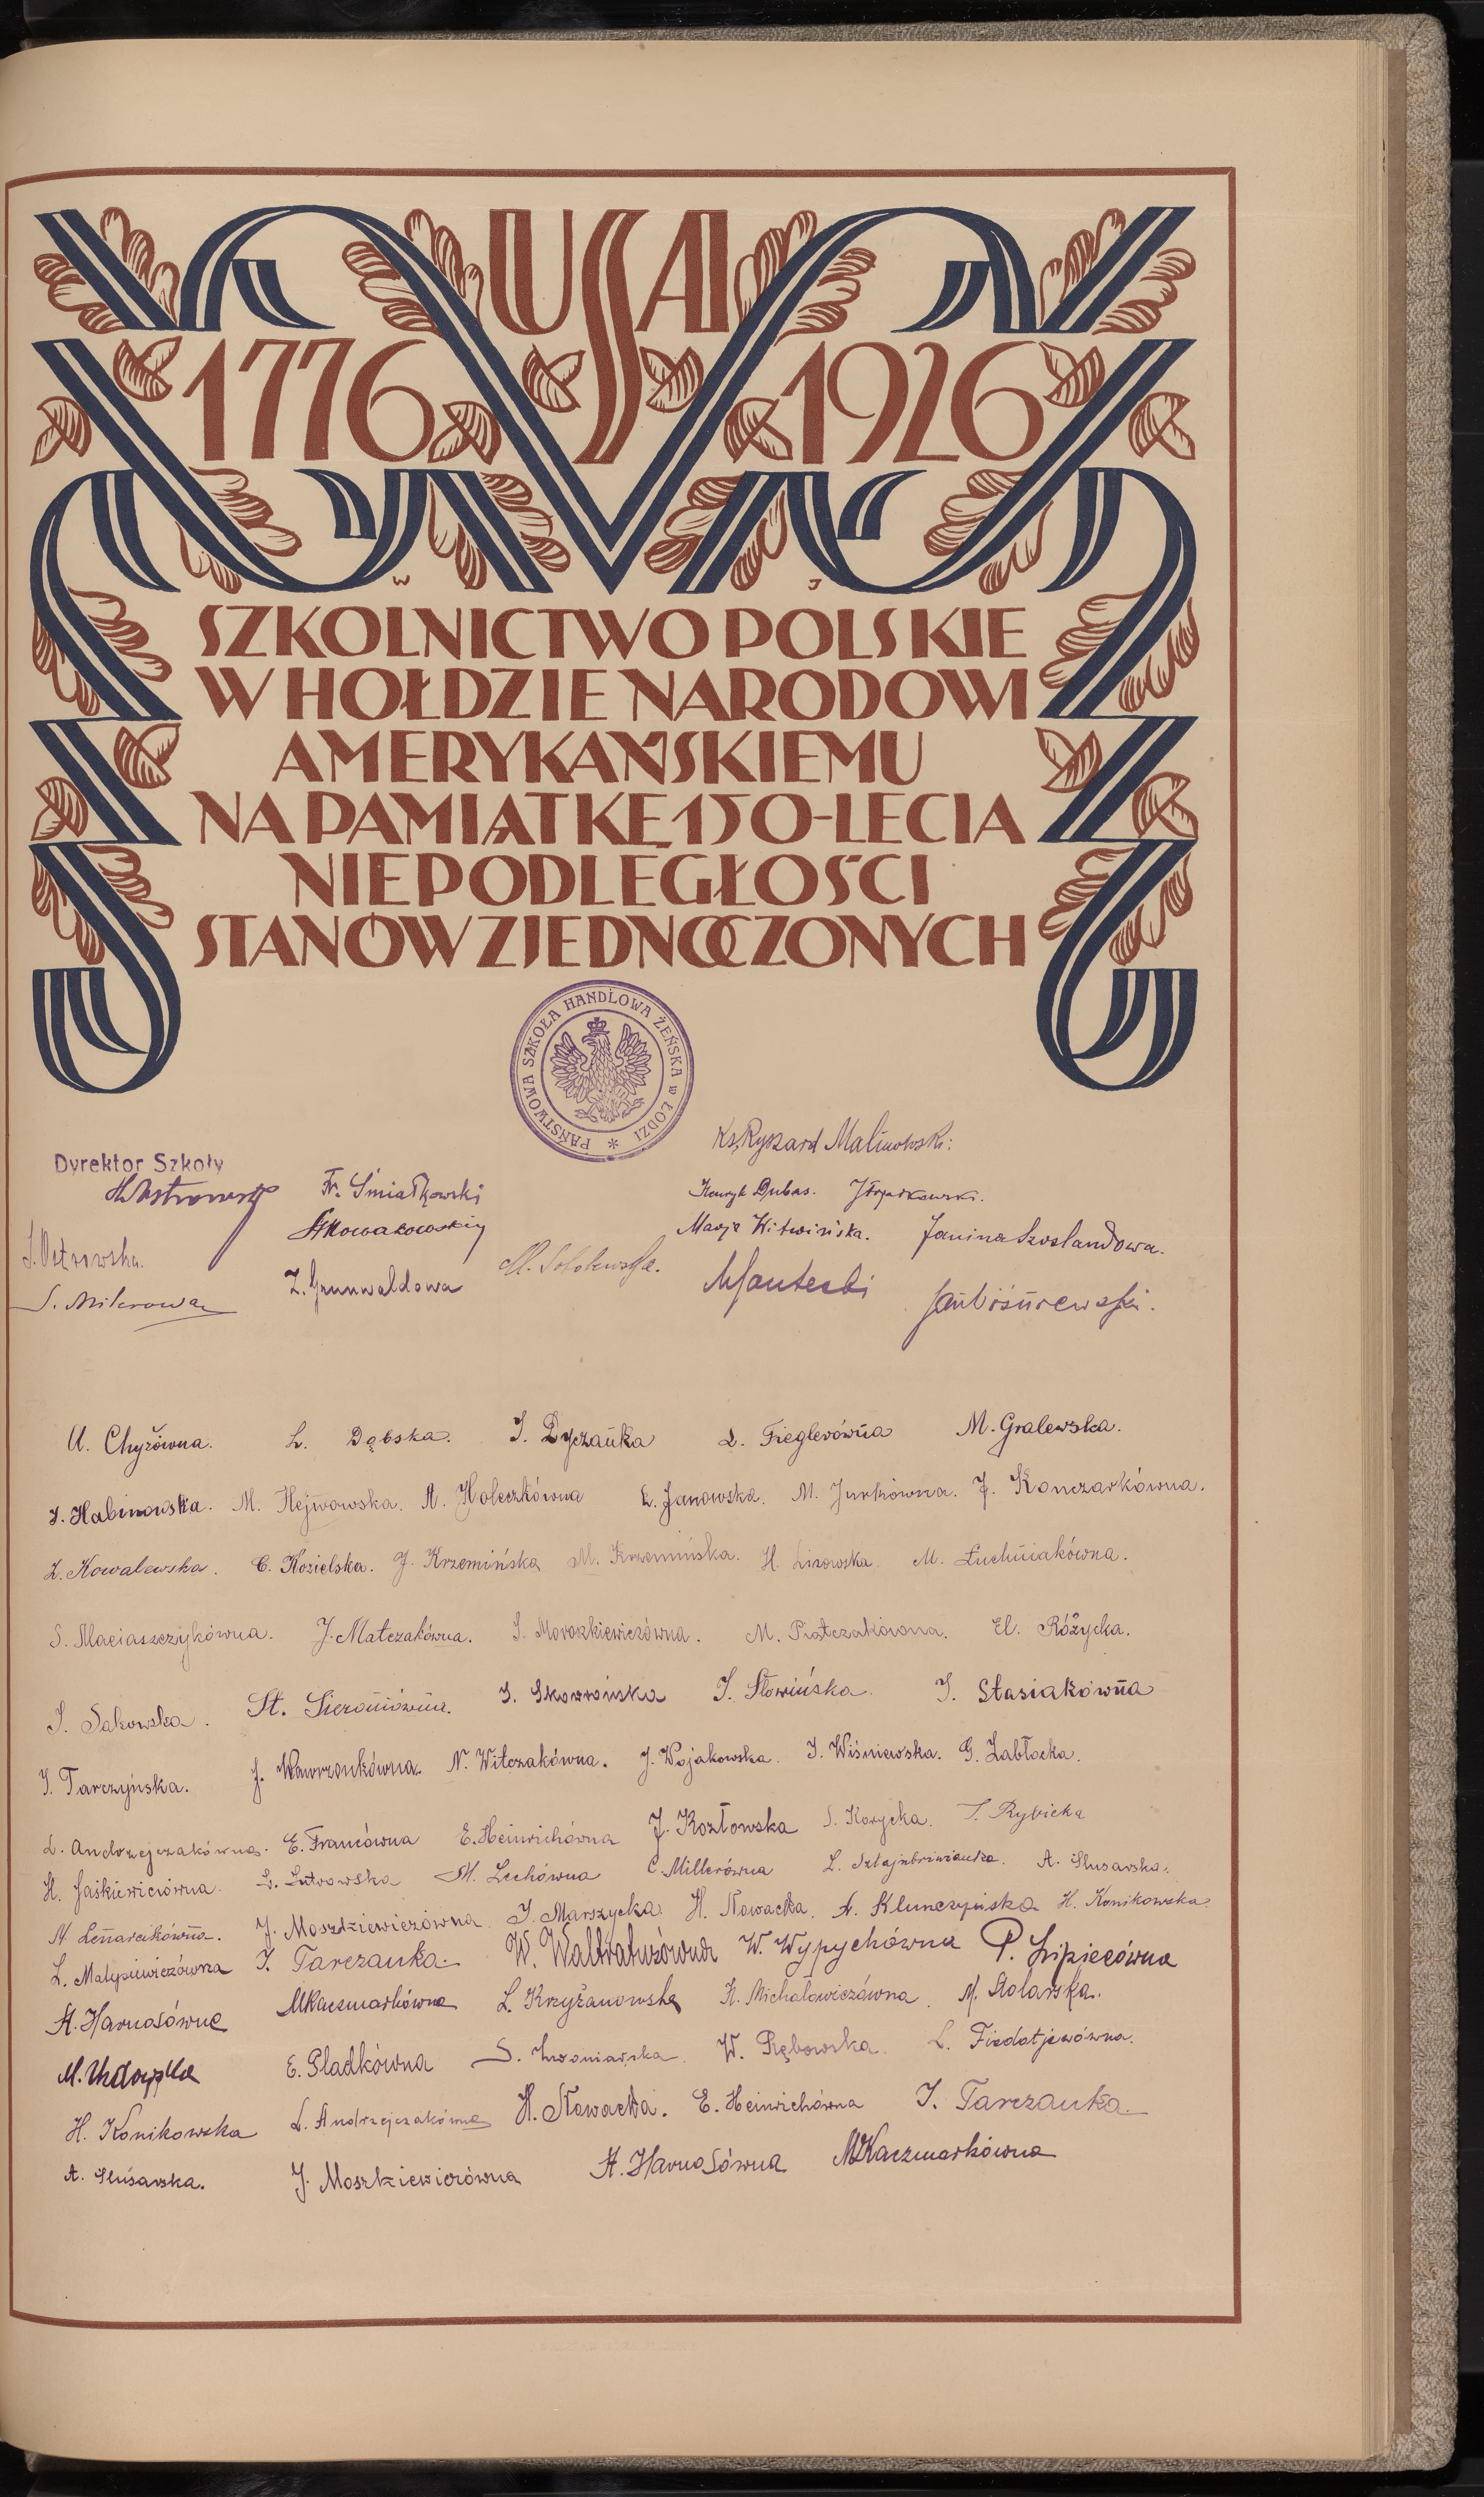 USA
1776 1926
W J
SZKOLNICTWO POLSKIE
W HOŁDZIE NARODOWI
AMERYKAŃSKIEMU
NA PAMIĄTKĘ 150-LECIA
NIEPODLEGŁOŚCI
STANÓW ZJEDNOCZONYCH
PAŃSTWOWA SZKOŁA HANDLOWA ŻEŃSKA w ŁODZI *
Ks. Ryszard Malinowski
Dyrektor Szkoły
Fr. Śmiałkowski Henryk Dubas.
Marja Witwińska. Janina Szoslandowa.
S. Ostrowska. M. Sobolewska.
Z. Grunwaldowa
U. Chyżówna. L. Dąbska. I. Dyczanka D. Fieglerówna M. Gralewska.
I. Habinowska. M. Hejwowska. A. Holeczkówna E. Janowska. M. Jurkówna. J. Konczarkówna.
Z. Kowalewska. C. Kozielska. J. Krzemińska M. Krzemińska. H. Lisowska. M. Łuchniakówna.
S. Maciaszczykówna. J. Matczakówna. I. Moroszkiewiczówna. M. Piątczakówna. El. Różycka.
I. Sakowska. St. Sieroniówna. I. Skowrońska I. Słowińska. I. Stasiakówna
I. Tarczyńska. J. Wawrzonkówna. N. Witczakówna. J. Wojakowska. I. Wiśniewska. G. Zabłocka.
L. Andrzejczakówna. E. Francówna E. Heinrichówna J. Kozłowska S. Korycka. S. Rybicka
H. Jaśkiewiczówna. L. Lutrowska M. Lechówna C. Millerówna A. Ślusarska.
H. Lenarcikówna. J. Moszkiewiczówna I. Marszycka. H. Nowacka. A. Klimczyńska H. Konikowska.
I. Tarczanka. W. Wypychówna P. Lipiecówna
A. Harnasówna M Kaczmarkówna L. Krzyżanowska K. Michałowiczówna. M. Stolarska.
E. Gladkówna W. Rębowska. L. Fiedotjewówna.
H. Konikowska L. Andrzejczakówna H. Nowacka. E. Heinrichówna I. Tarczanka.
A. Ślusarska. J. Moszkiewiczówna A. Harnasówna M Kaczmarkówna